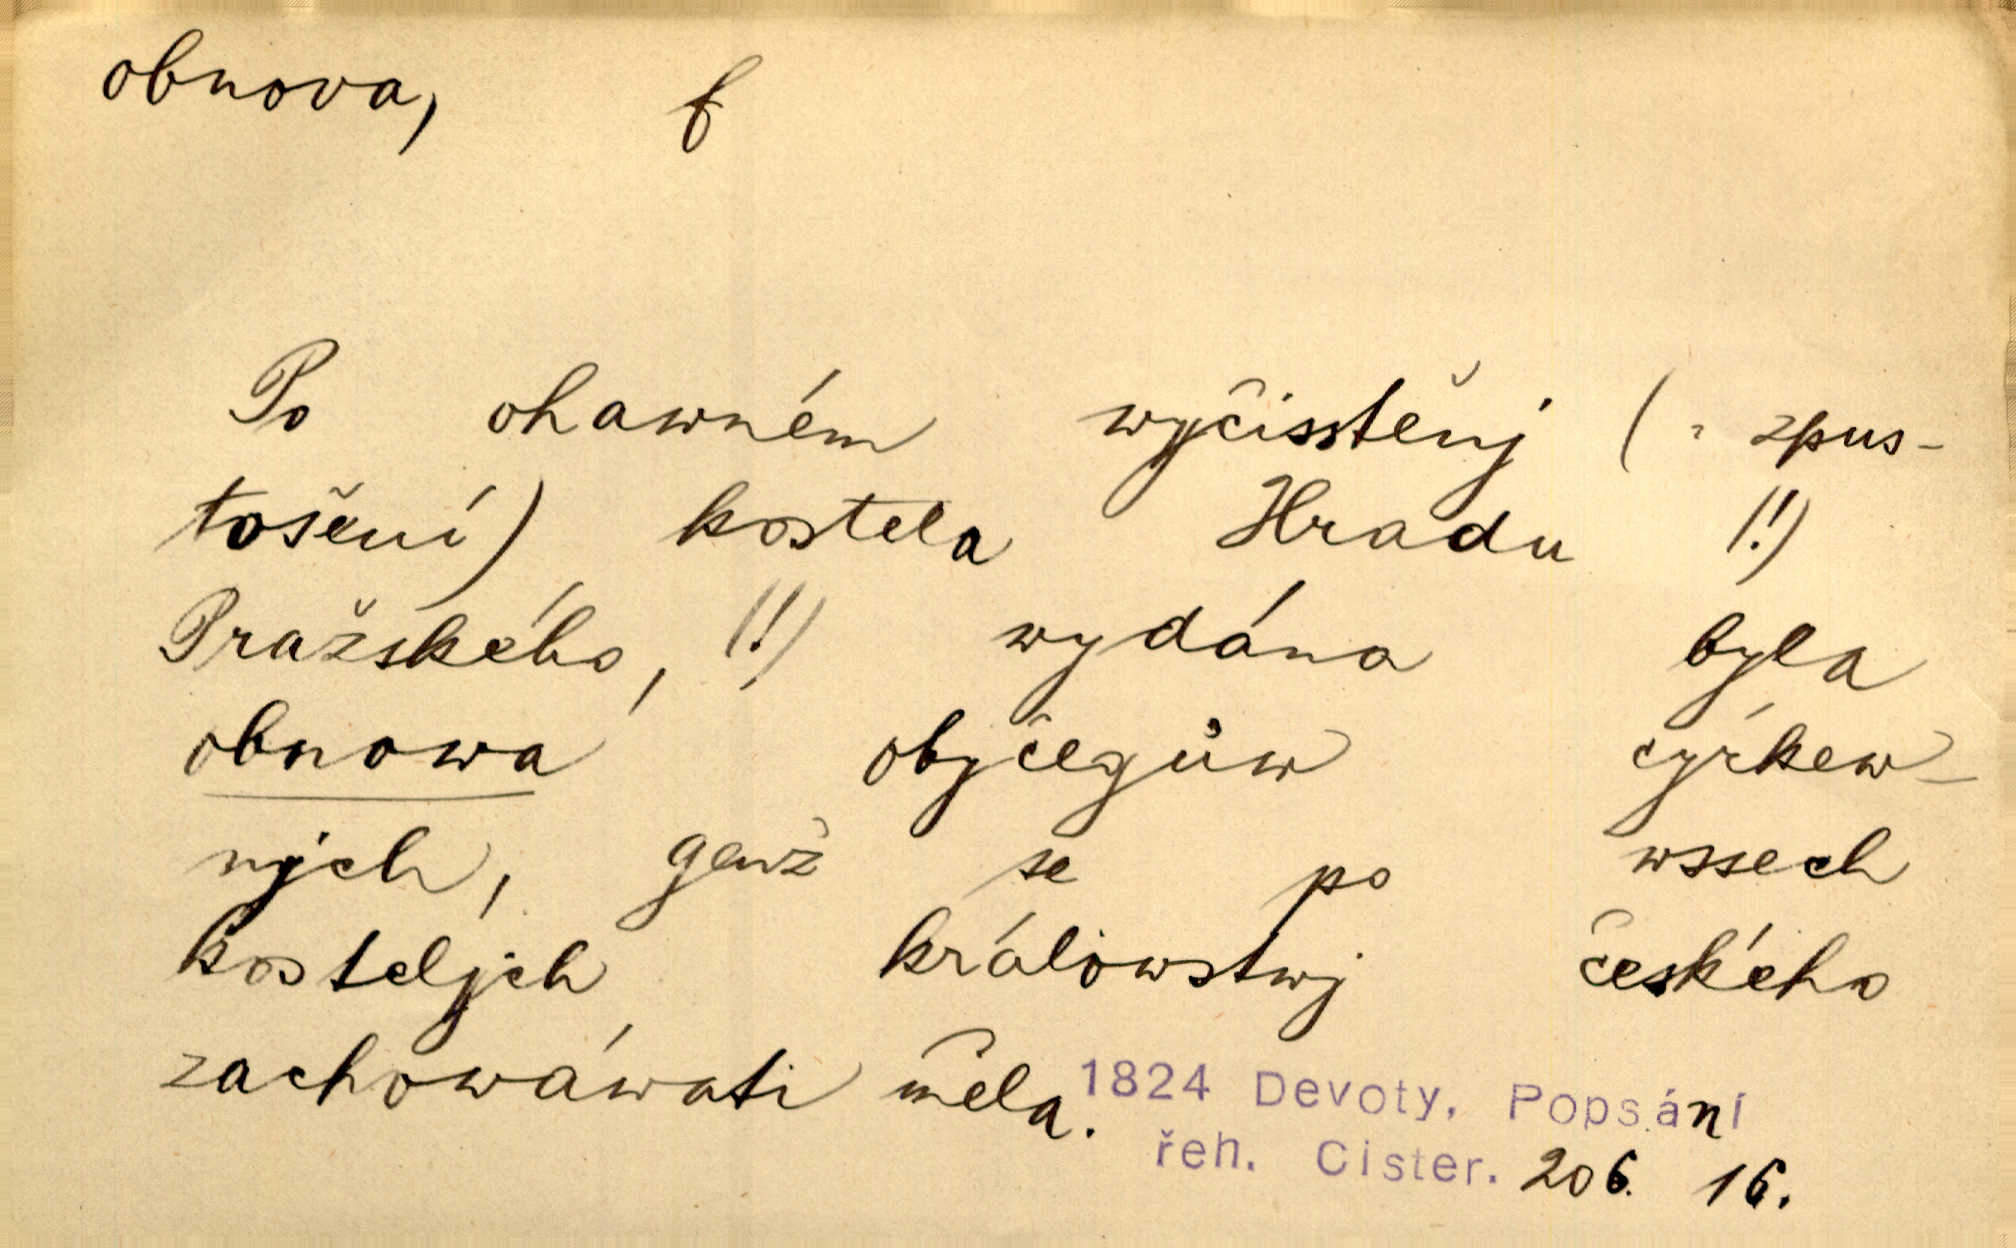 obnova, f
Po ohawném wyčisstěnj (= zpus-
tošení) kostela Hradu (!)
Pražského, (!) wydána byla
obnowa obyčegůw cyrkew-
ných, genž se po wssech
kosteljch králowstwj českého
zachowáwati měla.
1824 Devoty, Popsání
řeh. Cister. 206. 16.